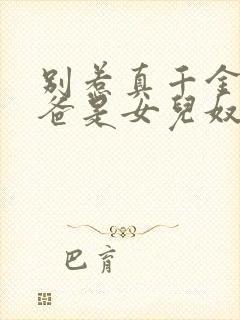 别惹真千金
爸是女儿奴
巴育